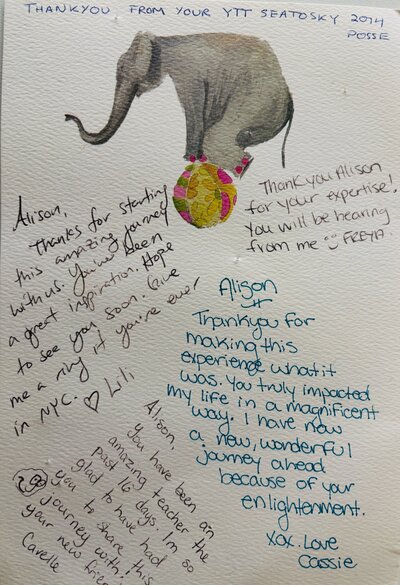 THANKYOU FROM YOUR YTT SEATOSKY 2014
POSSE
Thank you Alison
for your expertise!
You will be hearing
from me FREYA
Alison,
Thanks for starting
this amazing journey
with us. You've been
a great inspiration. Hope
to see you soon. Give
me a ring if you're ever
in NYC. ♡ Lili
Alison
Thankyou for
making this
experience what it
was. You truly impacted
my life in a magnificent
way. I have now
a new, wonderful
journey ahead
because of your
enlightenment.
xox. Love
Cassie
Alison,
You have been an
amazing teacher the
past 16 days. I'm so
glad to have had
you to share this
journey with!
your new frie